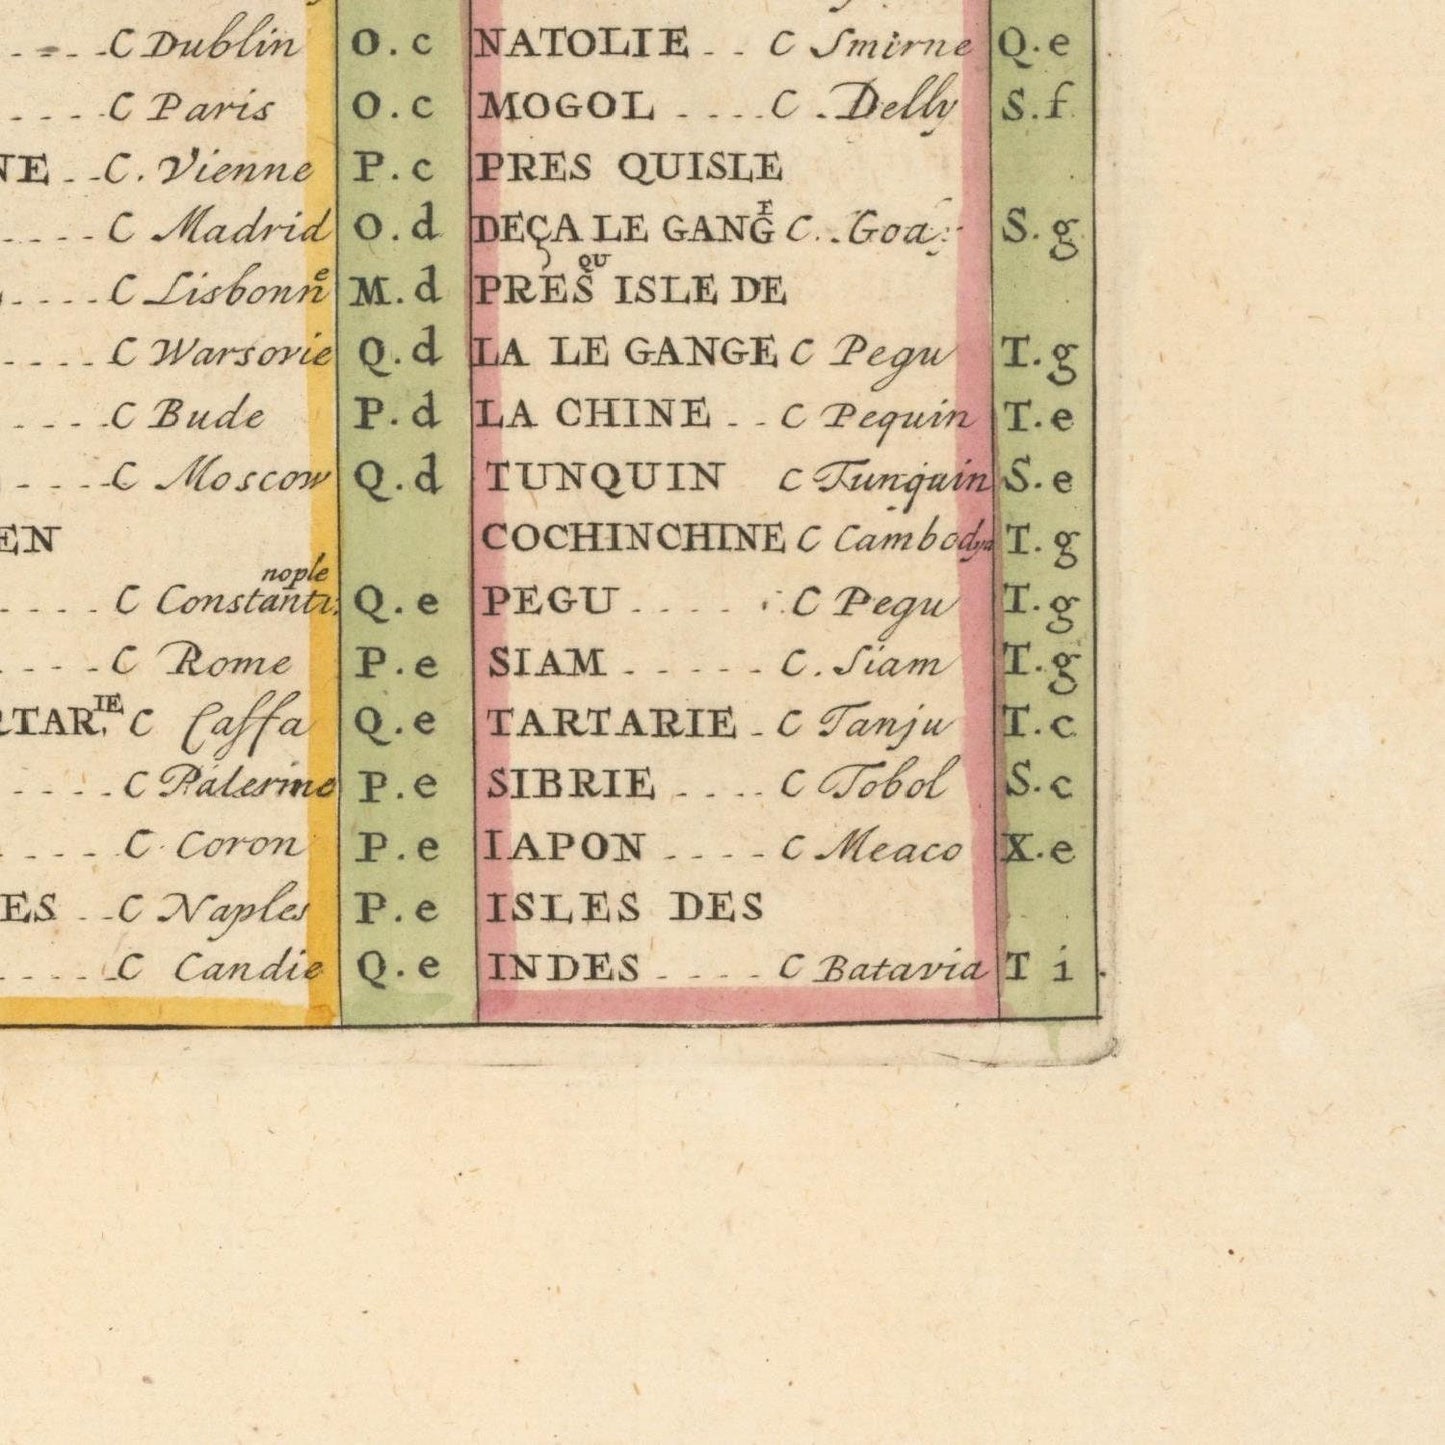 C Dublin O.c NATOLIE C Smirne Q.e
C Paris O.c MOGOL C. Delly S.f
NE C. Vienne P.c PRES QUISLE
C Madrid O.d DEÇA LE GANG<sup>r</sup> C. Goa S.g
C Lisbonn<sup>e</sup> M.d PRES<sup>QU</sup> ISLE DE
C Warsovie Q.d LA LE GANGE C Pegu T.g
C Bude P.d LA CHINE C Pequin T.e
C Moscow Q.d TUNQUIN C Tunquin S.e
EN COCHINCHINE C Cambodya T.g
C Constanti<sup>nople</sup> Q.e PEGU C Pegu T.g
C Rome P.e SIAM C. Siam T.g
RTAR<sup>IE</sup> C Caffa Q.e TARTARIE C Tanju T.c
C Palerme P.e SIBRIE C Tobol S.c
C Coron P.e IAPON C Meaco X.e
ES C Naples P.e ISLES DES
C Candie Q.e INDES C Batavia T i